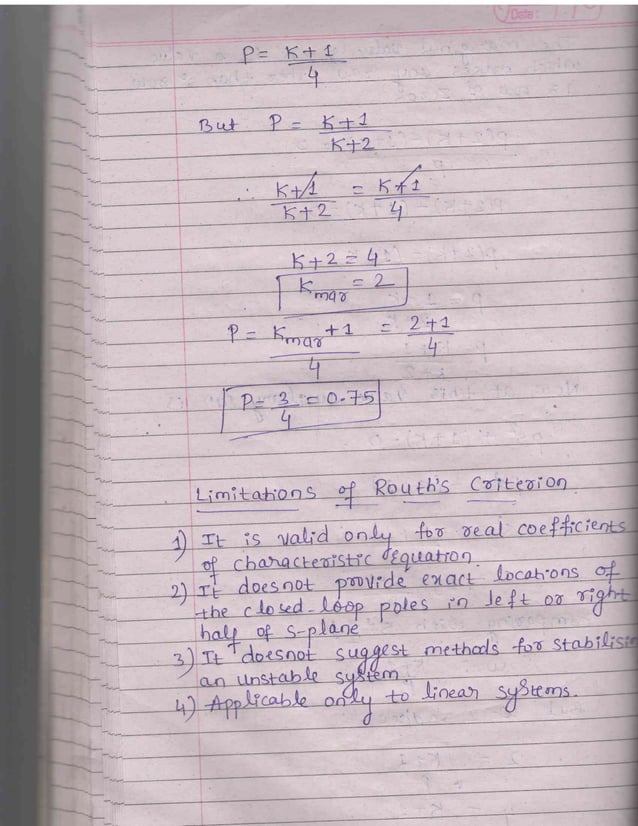 Date:
P = K+1
4
But P = K+1
K+2
∴ K+1 = K+1
K+2 4
K+2 = 4
Kmar = 2
P = Kmar+1 = 2+1
4 4
P = 3 = 0.75
4
Limitations of Routh's Criterion
1) It is valid only for real coefficients
of characteristic equation.
2) It doesnot provide exact locations of
the closed-loop poles in left or right
half of s-plane
3) It doesnot suggest methods for stabilisin
an unstable system.
4) Applicable only to linear systems.